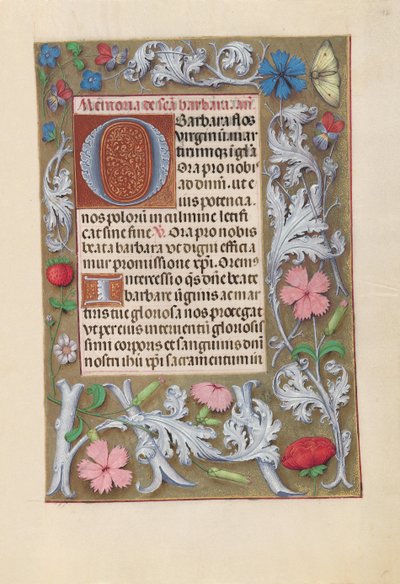 Memoria de scā barbara. an̄.
O Barbara flos
virginū mar
tirumq; īglā
Ora pro nobis
ad dnm̄. ut e
ius potencia.
nos polorum in culmine letifi
cat sine fine ℣. Ora pro nobis
beata barbara Vt digni efficia
mur promissione xpī. Oremus
Intercessio qs dn̄e beate
barbare v̄ginis ac mar
tiris tue gloriosa nos protegat
vt per eius interuentū gloriosis
simi corporis et sanguinis dn̄i
nostri ihū xpī sacramentum in